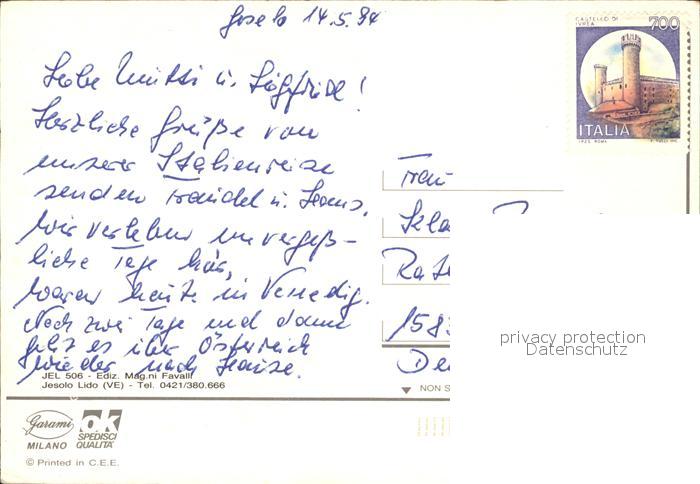 Jesolo 14.5.94
CASTELLO DI
IVREA
700
ITALIA
I.P.Z.S. ROMA
Liebe Mutti u. Siegfried!
Herzliche Grüße von
unserer Italienreise
senden Traudel u. Hans.
Wir verleben unvergeß-
liche Tage hier,
waren heute in Venedig.
Noch zwei Tage und dann
geht es über Österreich
wieder nach Hause.
Frau
158
JEL 506 - Ediz. Mag.ni Favalli
Jesolo Lido (VE) - Tel. 0421/380.666
NON S
privacy protection
Datenschutz
Garami
MILANO
ok
SPEDISCI
QUALITÀ
© Printed in C.E.E.